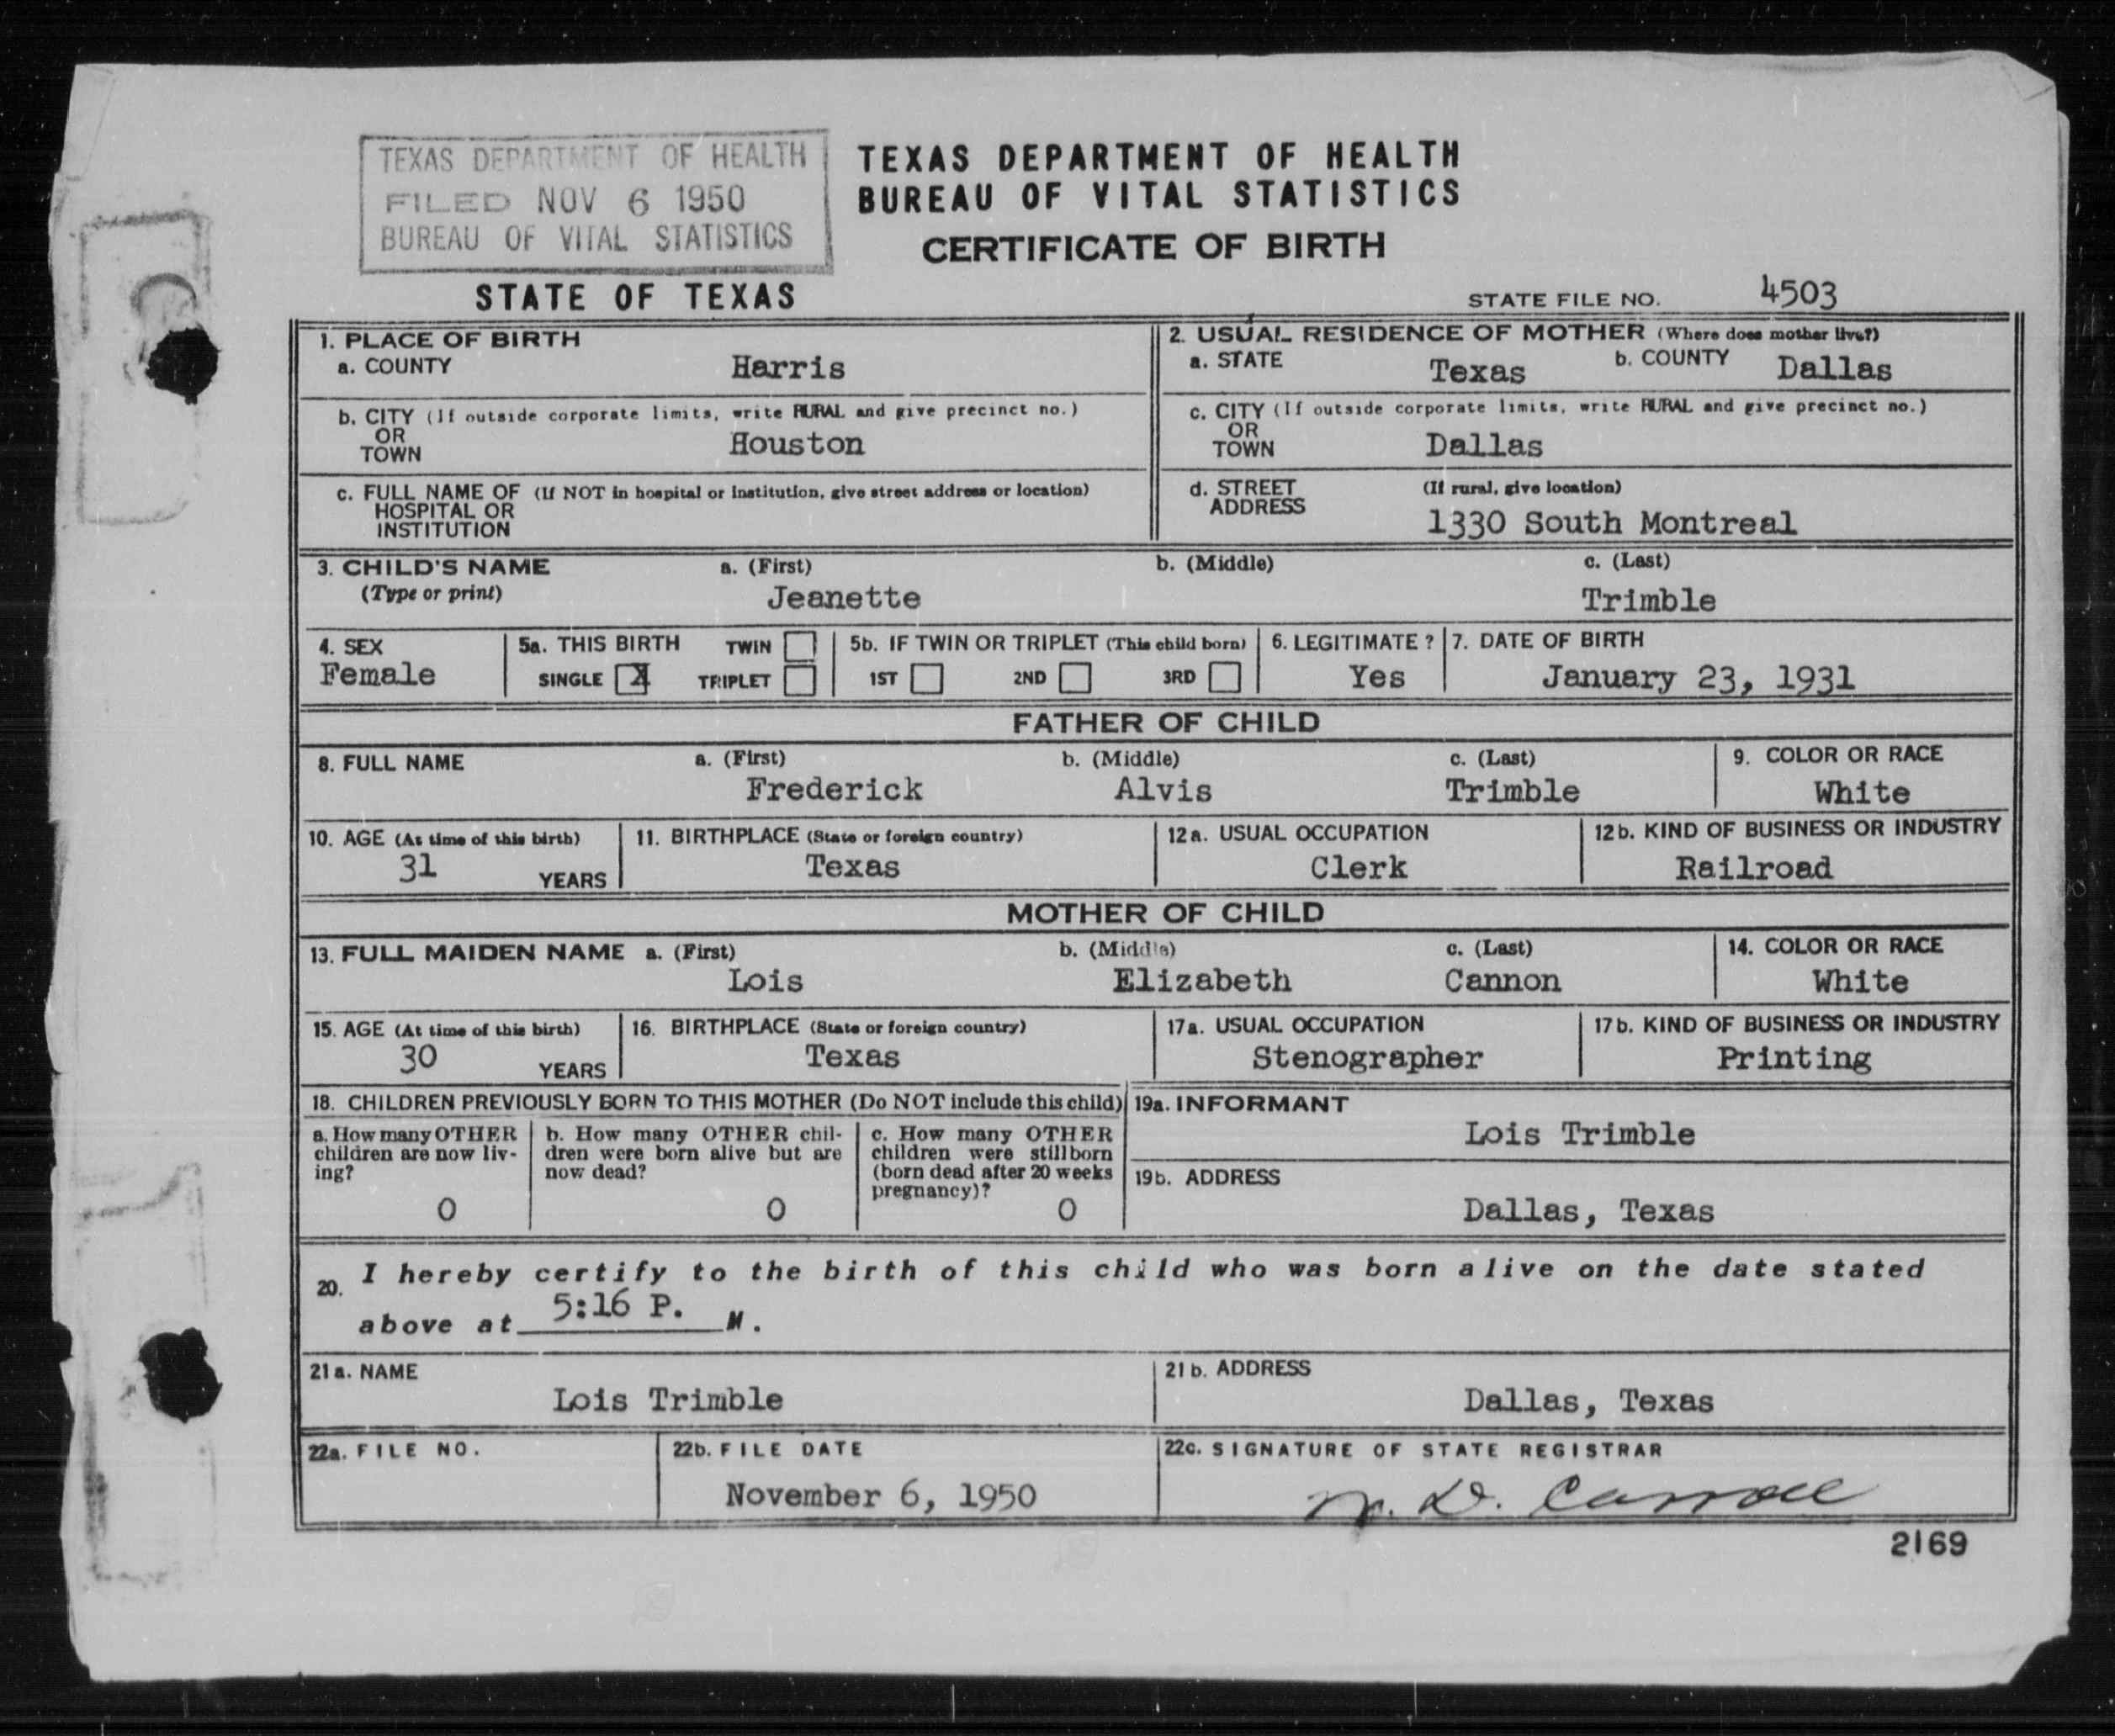 TEXAS DEPARTMENT OF HEALTH
FILED NOV 6 1950
BUREAU OF VITAL STATISTICS
TEXAS DEPARTMENT OF HEALTH
BUREAU OF VITAL STATISTICS
CERTIFICATE OF BIRTH
STATE OF TEXAS
STATE FILE NO. 4503
1. PLACE OF BIRTH
a. COUNTY Harris
2. USUAL RESIDENCE OF MOTHER (Where does mother live?)
a. STATE Texas b. COUNTY Dallas
b. CITY (If outside corporate limits, write RURAL and give precinct no.)
OR
TOWN Houston
c. CITY (If outside corporate limits, write RURAL and give precinct no.)
OR
TOWN Dallas
c. FULL NAME OF (If NOT in hospital or institution, give street address or location)
HOSPITAL OR
INSTITUTION
d. STREET (If rural, give location)
ADDRESS 1330 South Montreal
3. CHILD'S NAME a. (First) b. (Middle) c. (Last)
(Type or print) Jeanette Trimble
4. SEX
Female
5a. THIS BIRTH TWIN
SINGLE X TRIPLET
5b. IF TWIN OR TRIPLET (This child born)
1ST 2ND 3RD
6. LEGITIMATE ?
Yes
7. DATE OF BIRTH
January 23, 1931
FATHER OF CHILD
8. FULL NAME a. (First) b. (Middle) c. (Last) 9. COLOR OR RACE
Frederick Alvis Trimble White
10. AGE (At time of this birth) 11. BIRTHPLACE (State or foreign country) 12a. USUAL OCCUPATION 12b. KIND OF BUSINESS OR INDUSTRY
31 YEARS Texas Clerk Railroad
MOTHER OF CHILD
13. FULL MAIDEN NAME a. (First) b. (Middle) c. (Last) 14. COLOR OR RACE
Lois Elizabeth Cannon White
15. AGE (At time of this birth) 16. BIRTHPLACE (State or foreign country) 17a. USUAL OCCUPATION 17b. KIND OF BUSINESS OR INDUSTRY
30 YEARS Texas Stenographer Printing
18. CHILDREN PREVIOUSLY BORN TO THIS MOTHER (Do NOT include this child)
a. How many OTHER
children are now liv-
ing?
0
b. How many OTHER chil-
dren were born alive but are
now dead?
0
c. How many OTHER
children were stillborn
(born dead after 20 weeks
pregnancy)?
0
19a. INFORMANT
Lois Trimble
19b. ADDRESS
Dallas, Texas
20. I hereby certify to the birth of this child who was born alive on the date stated
above at 5:16 P. M.
21a. NAME
Lois Trimble
21b. ADDRESS
Dallas, Texas
22a. FILE NO.
22b. FILE DATE
November 6, 1950
22c. SIGNATURE OF STATE REGISTRAR
W. D. Carroll
2169